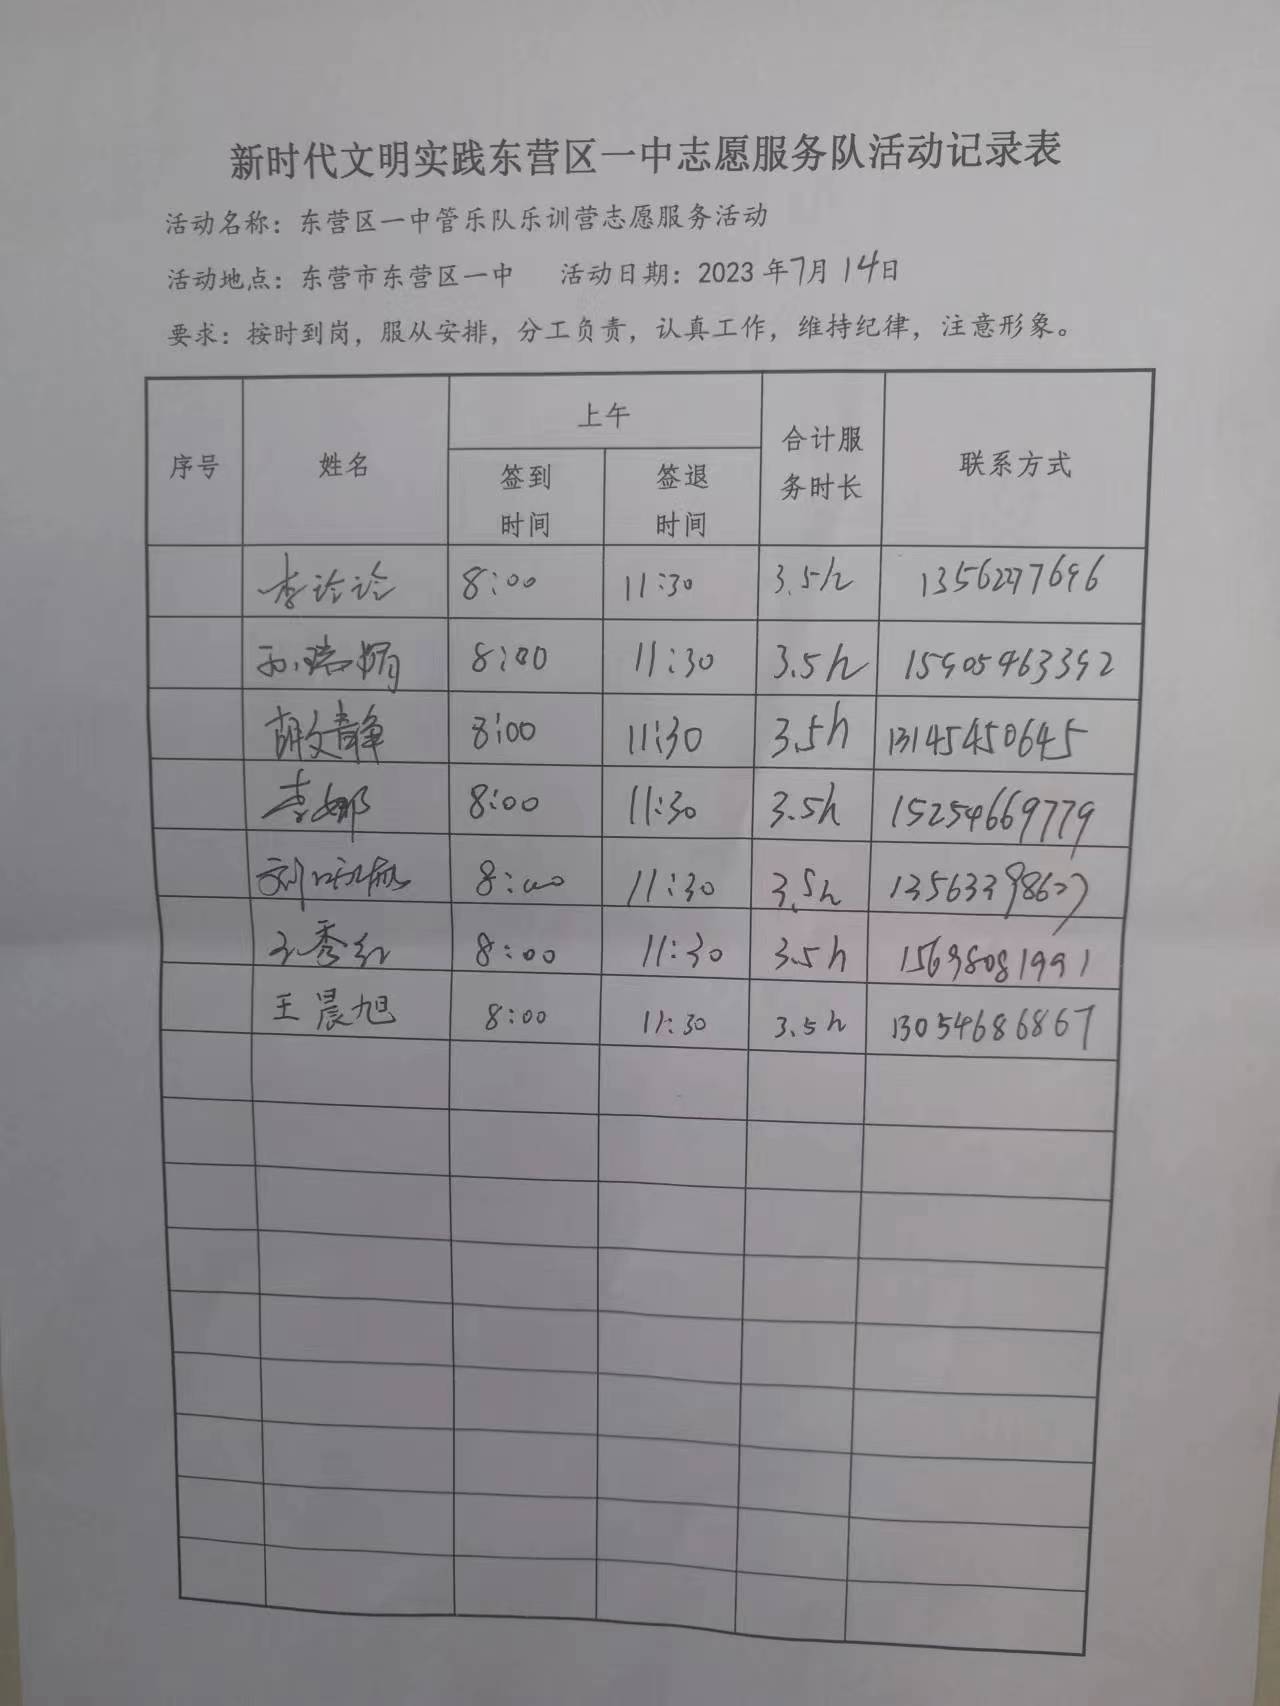 新时代文明实践东营区一中志愿服务队活动记录表
活动名称：东营区一中管乐队乐训营志愿服务活动
活动地点：东营市东营区一中 活动日期：2023 年7月14日
要求：按时到岗，服从安排，分工负责，认真工作，维持纪律，注意形象。
序号 姓名 上午 合计服务时长 联系方式
签到时间 签退时间
李 8:00 11:30 3.5h
孙瑞娟 8:00 11:30 3.5h 15905463392
胡文静 8:00 11:30 3.5h 13145450645
李娜 8:00 11:30 3.5h 15254669779
刘 8:00 11:30 3.5h
王秀红 8:00 11:30 3.5h 15698081991
王晨旭 8:00 11:30 3.5h 13054686867